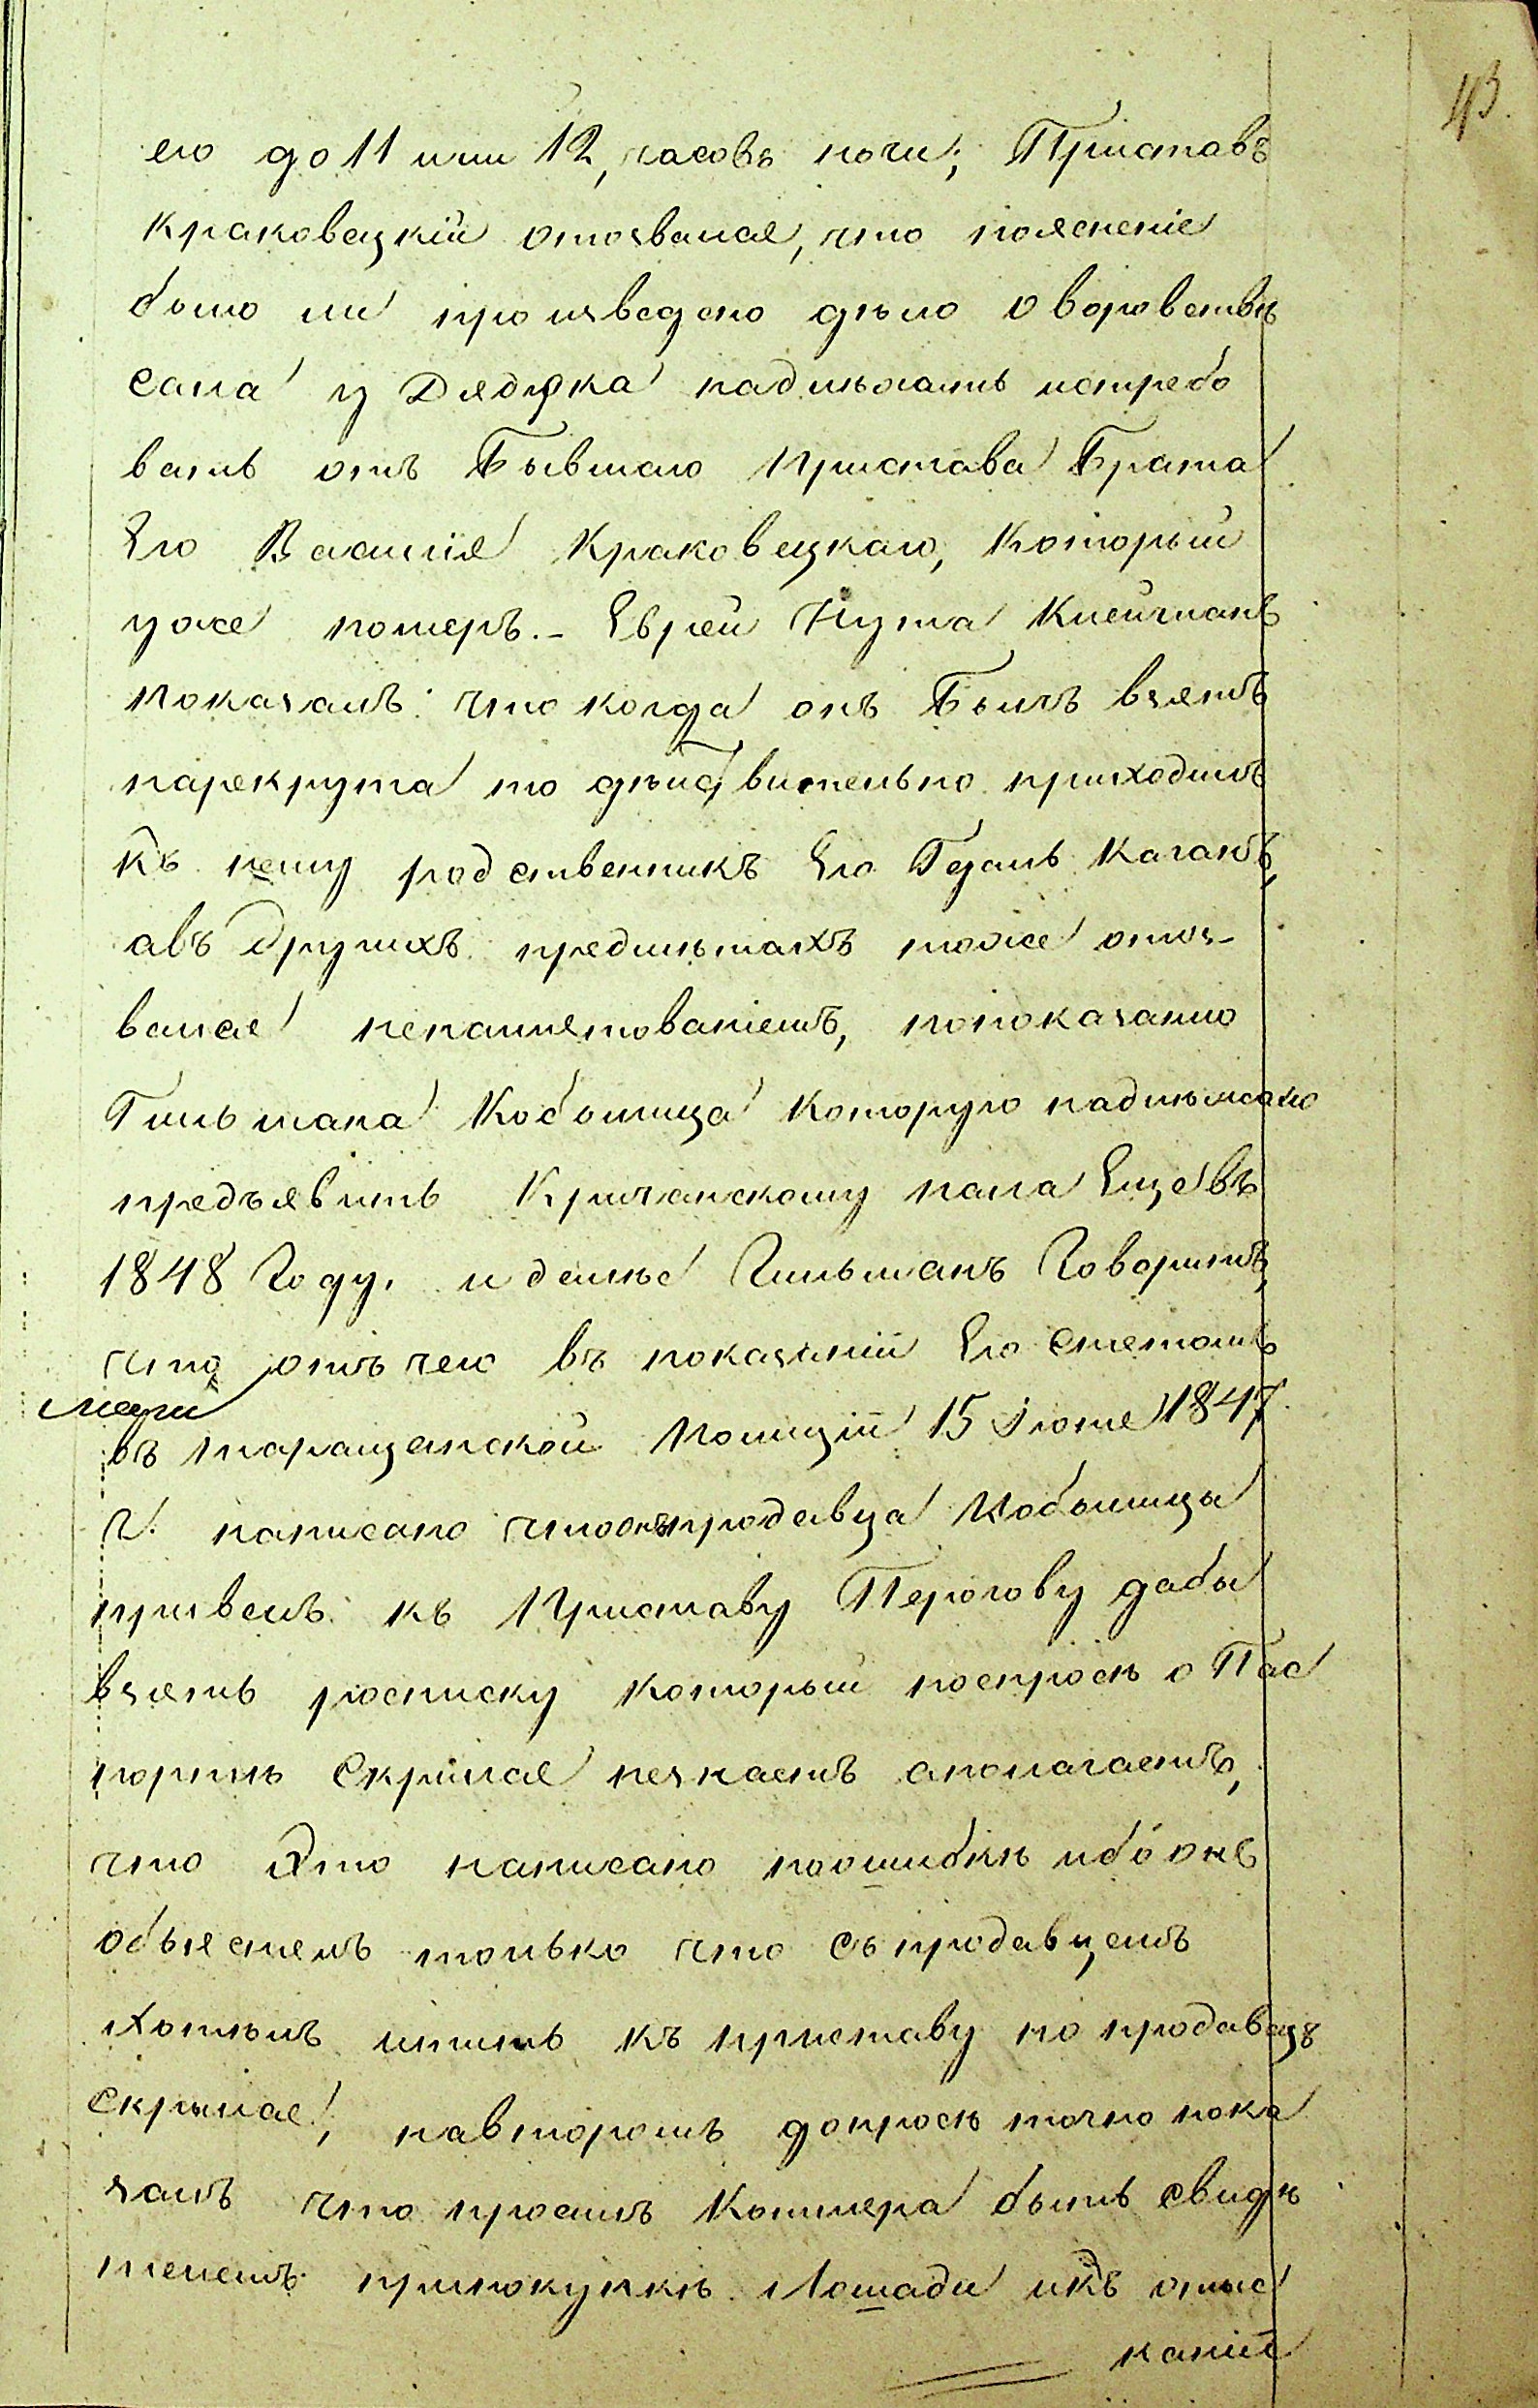 43.
его до 11 или 12, часовъ ночи; Приставъ
Краковецкій отозвался, что пояснѣніе
было ли произведено дѣло о воровствѣ
сала у Дядюка надлѣжатъ истребо
вать отъ Бывшаго Пристава Брата
Его Василія Краковецкаго, Который
уже померъ.- Еврей Нута Клейчманъ
показалъ: что когда онъ Былъ взятъ
нарекрута то дѣйствительно приходилъ
къ нему родственникъ Его Гедаль Каганъ,
авъ другихъ предмѣтахъ тоже отоз-
вался непамятованіемъ, попоказанию
Гильмана Кобылица Которую надлѣжало
предъявить Кричанскому пала Еще въ
1848 Году. и далѣе Гильманъ Говоритъ,
что отъ чего въ показаніи Его снетомъ
въ таращанской Полиціи 15 Іюля 1847
г. написано что онъ продавца Кобылицы
привелъ къ Приставу Перогову дабы
взять росписку который поспросѣ о Пас
портѣ Скрылся незнаетъ аполагаетъ,
что Это написано поошибкѣ ибо онъ
объяснялъ только что съ продавцемъ
хотѣлъ итить къ приставу но продавецъ
скрылся, навторомъ допросѣ точно пока
залъ что просилъ Котляра быть свидѣ
телемъ припокупкѣ Лошади икъ отыс
каніи